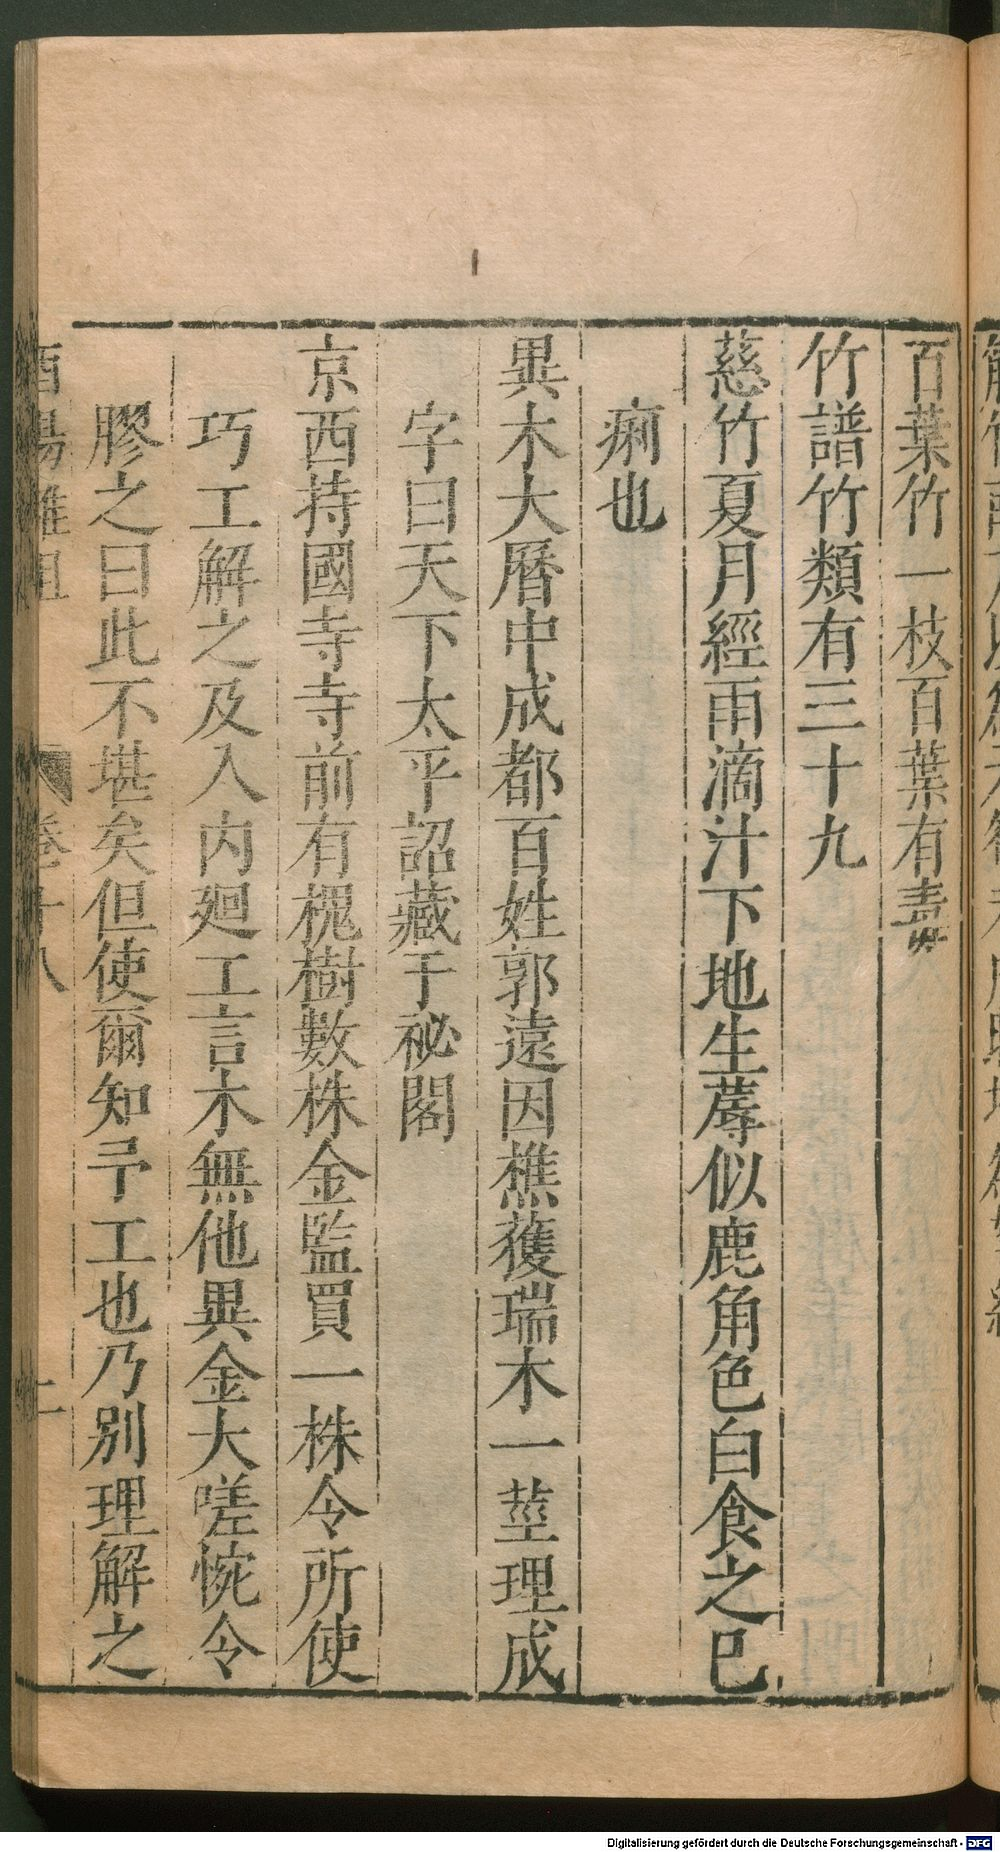 百葉竹一枝百葉有毒
竹譜竹類有三十九
慈竹夏月經雨滴汁下地生蓐似鹿角色白食之已
痢也
異木大曆中成都百姓郭遠因樵獲瑞木一莖理成
字曰天下太平詔藏于祕閣
京西持國寺寺前有槐樹數株金監買一株令所使
巧工解之及入内廻工言木無他異金大嗟惋令
膠之曰此不堪矣但使爾知予工也乃別理解之
酉陽雜俎 卷十八 二
Digitalisierung gefördert durch die Deutsche Forschungsgemeinschaft - DFG